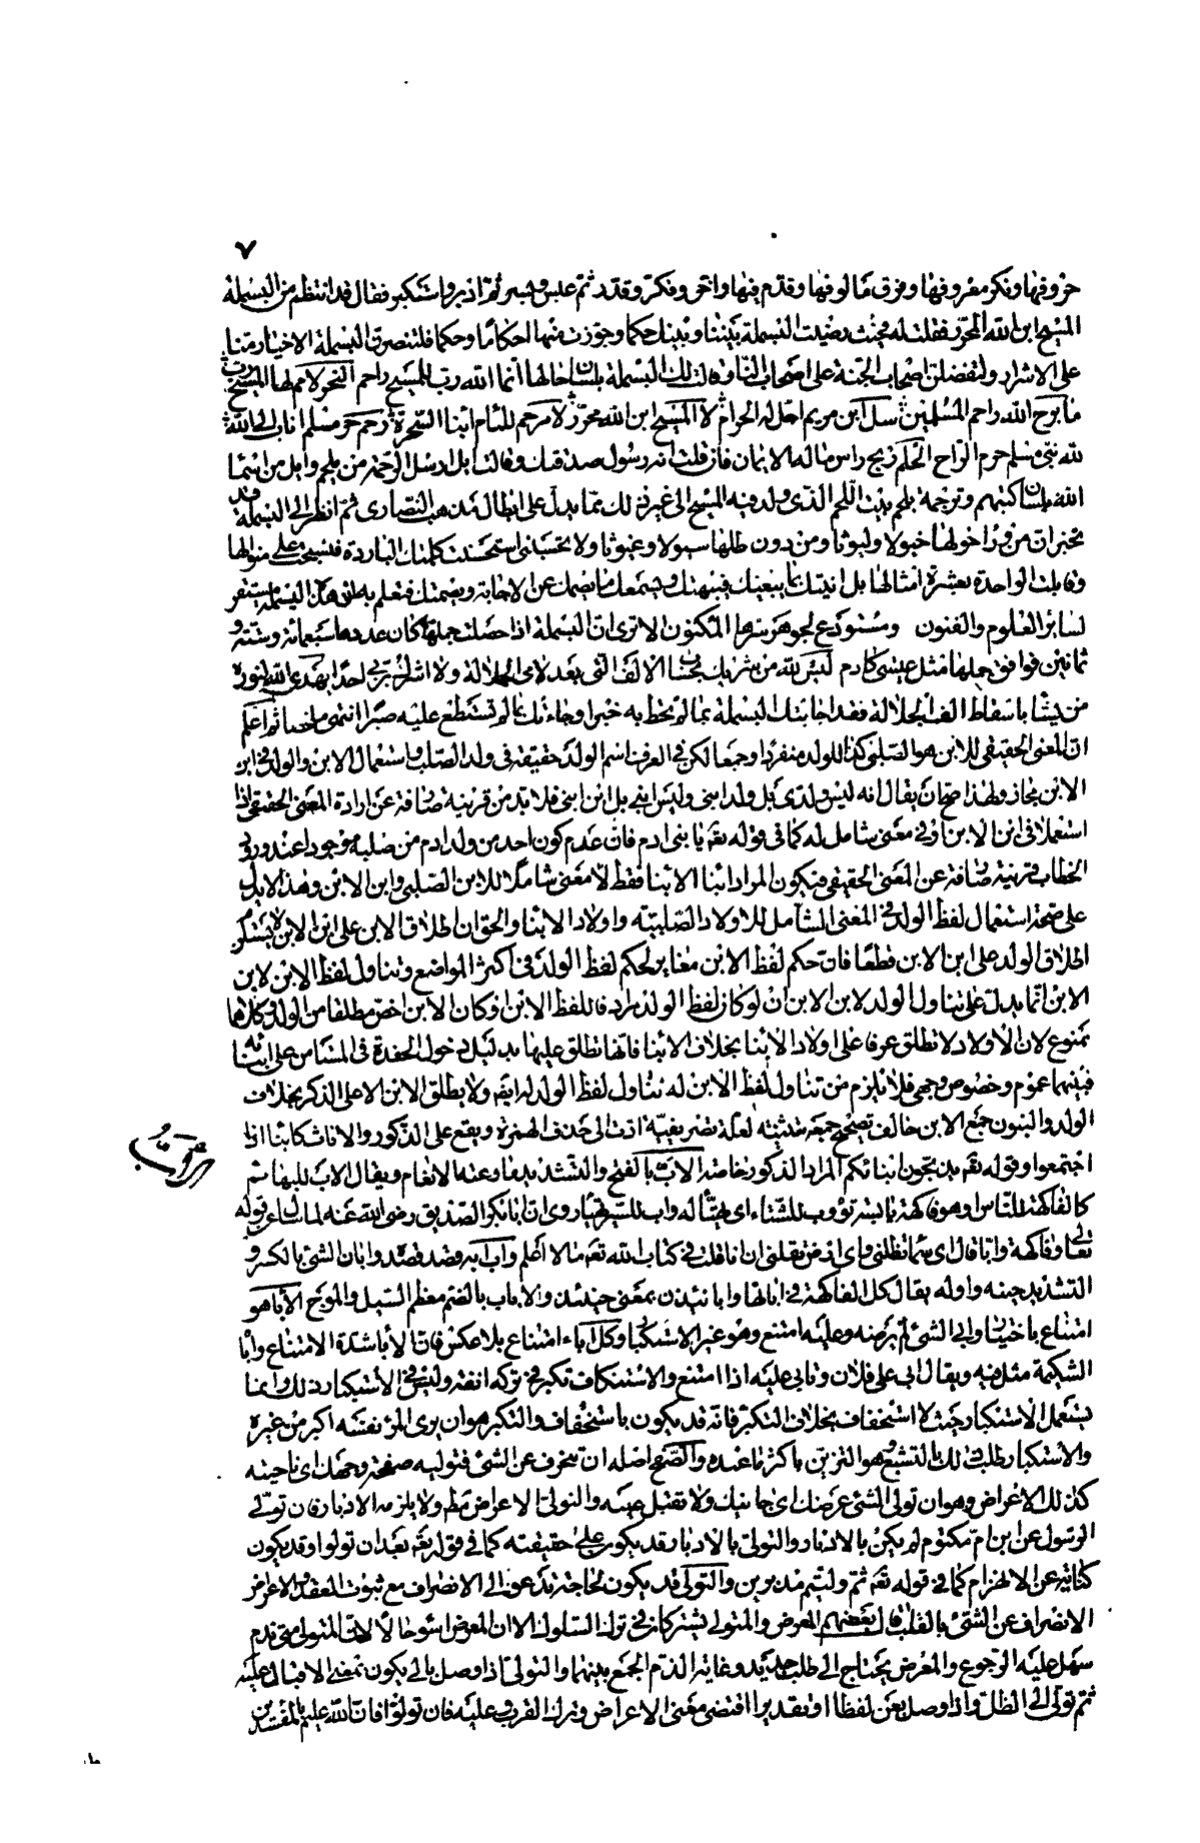 ٧
حروفها ونكر معروفها وفرق مألوفها وقدم فيها وأخر وفكر وقدر ثم عبس وبسر ثم أدبر واستكبر فقال قد انتظم من البسملة
المسيح ابن الله المحرر فقلت له فحيث رضيت البسملة بيننا وبينك حكما وجوزت منها أحكاما وحكما فلتنصرن البسملة الأخيار منا
على الأشرار ولتفضلن أصحاب الجنة على أصحاب النار قالت لك البسملة بلسان حالها إنما الله رب للمسيح راحم النحر لأمم لها المسيح رب
ما برح الله راحم المسلمين سل ابن مريم أحل له الحرام لا المسيح ابن الله محرر لا مرحم للئام أبناء السحرة رحم حر مسلم أناب إلى الله
لله نبي مسلم حرم الراح الحلم ربح رأس ماله الإيمان فإن قلت إنه رسول صدقتك وقالت إيل أرسل الرحمة من بلحم وإيل من أسماء
الله بلسان كتبهم وترجمة بلحم بيت اللحم الذي ولد فيه المسيح إلى غير ذلك مما يدل على إبطال مذهب النصارى ثم انظر إلى البسملة قد
تخبر أن من وراء حولها خيولا وليوثا ومن دون طلها سيولا وغيوثا ولا تحسبني استحسنت كلمتك الباردة فنسجت على منوالها
وقابلت الواحدة بعشرة أمثالها بل أتيتك بما يبغيك فيبهتك ويسمعك ما يصمك عن الإجابة ويصمتك فتعلم به أن هذه البسملة مستقر
لسائر العلوم والفنون ومستودع لجوهر سرها المكنون ألا ترى أن البسملة إذا حصلت جملتها كان عددها سبعمائة وستة و
ثمانين فوافق جملها مثل عيسى كآدم ليس لله من شريك بحساب الألف التي بعد لامي الجلالة ولا أشرك بربي أحدا يهدي الله لنوره
من يشاء بإسقاط ألف الجلالة فقد أجابتك البسملة بما لم تحط به خبرا وجاءتك بما لم تستطع عليه صبرا انتهى ملخصا ثم اعلم
أن المعنى الحقيقي للابن هو الصلبي كذا للولد منفردا وجمعا لكن في العرف اسم الولد حقيقة في ولد الصلب واستعمال الابن والولد في ابن
الابن مجاز ولهذا صح أن يقال إنه ليس ولدي بل ولد ابني وليس ابني بل ابن ابني فلا بد من قرينة صارفة عن إرادة المعنى الحقيقي إذا
استعملا في ابن الابن أو في معنى شامل له كما في قوله تع يا بني آدم فإن عدم كون أحد من ولد آدم من صلبه موجودا عند ورود
الخطاب قرينة صارفة عن المعنى الحقيقي فيكون المراد أبناء الأبناء فقط لا معنى شاملا للابن الصلبي وابن الابن وهذا لا يدل
على صحة استعمال لفظ الولد في المعنى الشامل للأولاد الصلبية وأولاد الأبناء والحق أن إطلاق الابن على ابن الابن لا يستلزم
إطلاق الولد على ابن الابن قطعا فإن حكم لفظ الابن مغاير لحكم لفظ الولد في أكثر المواضع وتناول لفظ الابن لابن
الابن إنما يدل على تناول الولد لابن الابن أن لو كان لفظ الولد مرادفا للفظ الابن أو كان الابن أخص مطلقا من الولد وكلاهما
ممنوع لأن الأولاد لا تطلق عرفا على أولاد الأبناء بخلاف الأبناء فإنها تطلق عليها بدليل دخول الحفدة في المستأمن على أبنائه
فبينهما عموم وخصوص وجهي فلا يلزم من تناول لفظ الابن له تناول لفظ الولد له أيضا ولا يطلق الابن إلا على الذكر بخلاف
الولد والبنون جمع الابن خالف تصحيح جمعه تثنيته لعلة تصريفية أدت إلى حذف الهمزة ويقع على الذكور والإناث كأبناء إذا
اجتمعوا وقوله تع يذبحون أبناءكم المراد الذكور خاصة الأب بالفتح والتشديد ما رعته الأنعام ويقال الأب للبهائم
كالفاكهة للناس أو هو فاكهة يابسة تؤوب للشتاء أي تهيأ له وأب للسير تهيأ روي أن أبا بكر الصديق رضي الله عنه لما سئل عن قوله
تعالى وفاكهة وأبا قال أي سماء تظلني وأي أرض تقلني إن أنا قلت في كتاب الله تعالى ما لا أعلم وأب أبه قصد قصده وإبان الشيء بالكسر و
التشديد حينه وأوله يقال كل الفاكهة في إبانها وإبانئذ بمعنى حينئذ والأباب بالضم معظم السيل والموج الإباء هو
امتناع باختيار وأبى الشيء لم يرضه وعليه امتنع وهو غير الاستكبار وكل إباء امتناع بلا عكس فإن الإباء شدة الامتناع وإباء
الشكيمة مثل فيه ويقال أبى على فلان وتأبى عليه إذا امتنع والاستنكاف تكبر في تركه أنفة وليس في الاستكبار ذلك وإنما
يستعمل الاستكبار حيث لا استخفاف بخلاف التكبر فإنه قد يكون باستخفاف والتكبر هو أن يرى المرء نفسه أكبر من غيره
والاستكبار طلب ذلك بالتشبع وهو التزين بأكثر ما عنده والصفح أصله أن تنحرف عن الشيء فتوليه صفحة وجهك أي ناحيته
كذلك الإعراض وهو أن تولي الشيء عرضك أي جانبك ولا تقبل عليه والتولي الإعراض مطلقا ولا يلزمه الإدبار فإن تولي
الرسول عن ابن أم مكتوم لم يكن بالإدبار والتولي بالإدبار قد يكون على حقيقته كما في قوله تع بعد أن تولوا وقد يكون
كناية عن الانهزام كما في قوله تع ثم وليتم مدبرين والتولي قد يكون لحاجة تدعو إلى الانصراف مع ثبوت العقد والإعراض
الانصراف عن الشيء بالقلب قال بعضهم المعرض والمتولي يشتركان في ترك السلوك إلا أن المعرض أسوأ حالا لأن المتولي متى ندم
سهل عليه الرجوع والمعرض يحتاج إلى طلب جديد وغاية الذم الجمع بينهما والتولي إذا وصل بإلى يكون بمعنى الإقبال عليه
ثم تولى إلى الظل وإذا وصل بعن لفظا أو تقديرا اقتضى معنى الإعراض وترك القرب وعليه فإن تولوا فإن الله عليم بالمفسدين